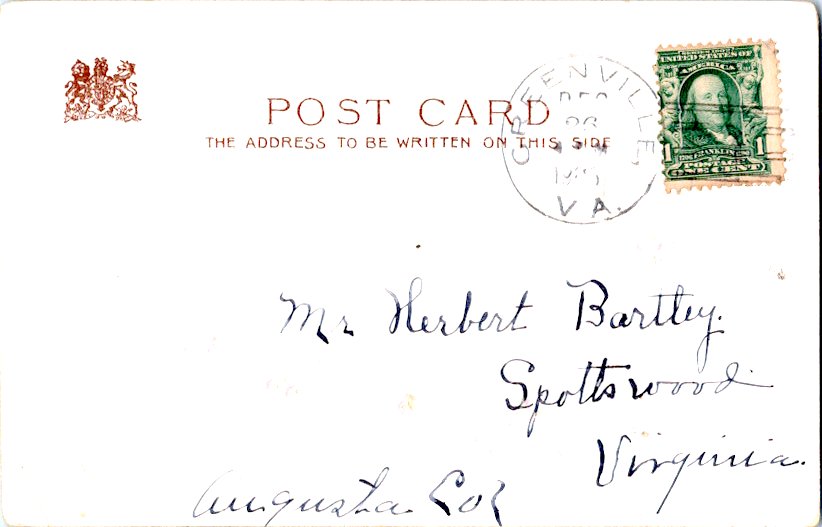 POST CARD
THE ADDRESS TO BE WRITTEN ON THIS SIDE
GREENVILLE,
DEC
VA.
SERIES 1902
UNITED STATES OF
AMERICA
FRANKLIN
1 POSTAGE 1
ONE CENT
Mr Herbert Bartley.
Spottswood
Virginia.
Augusta Co